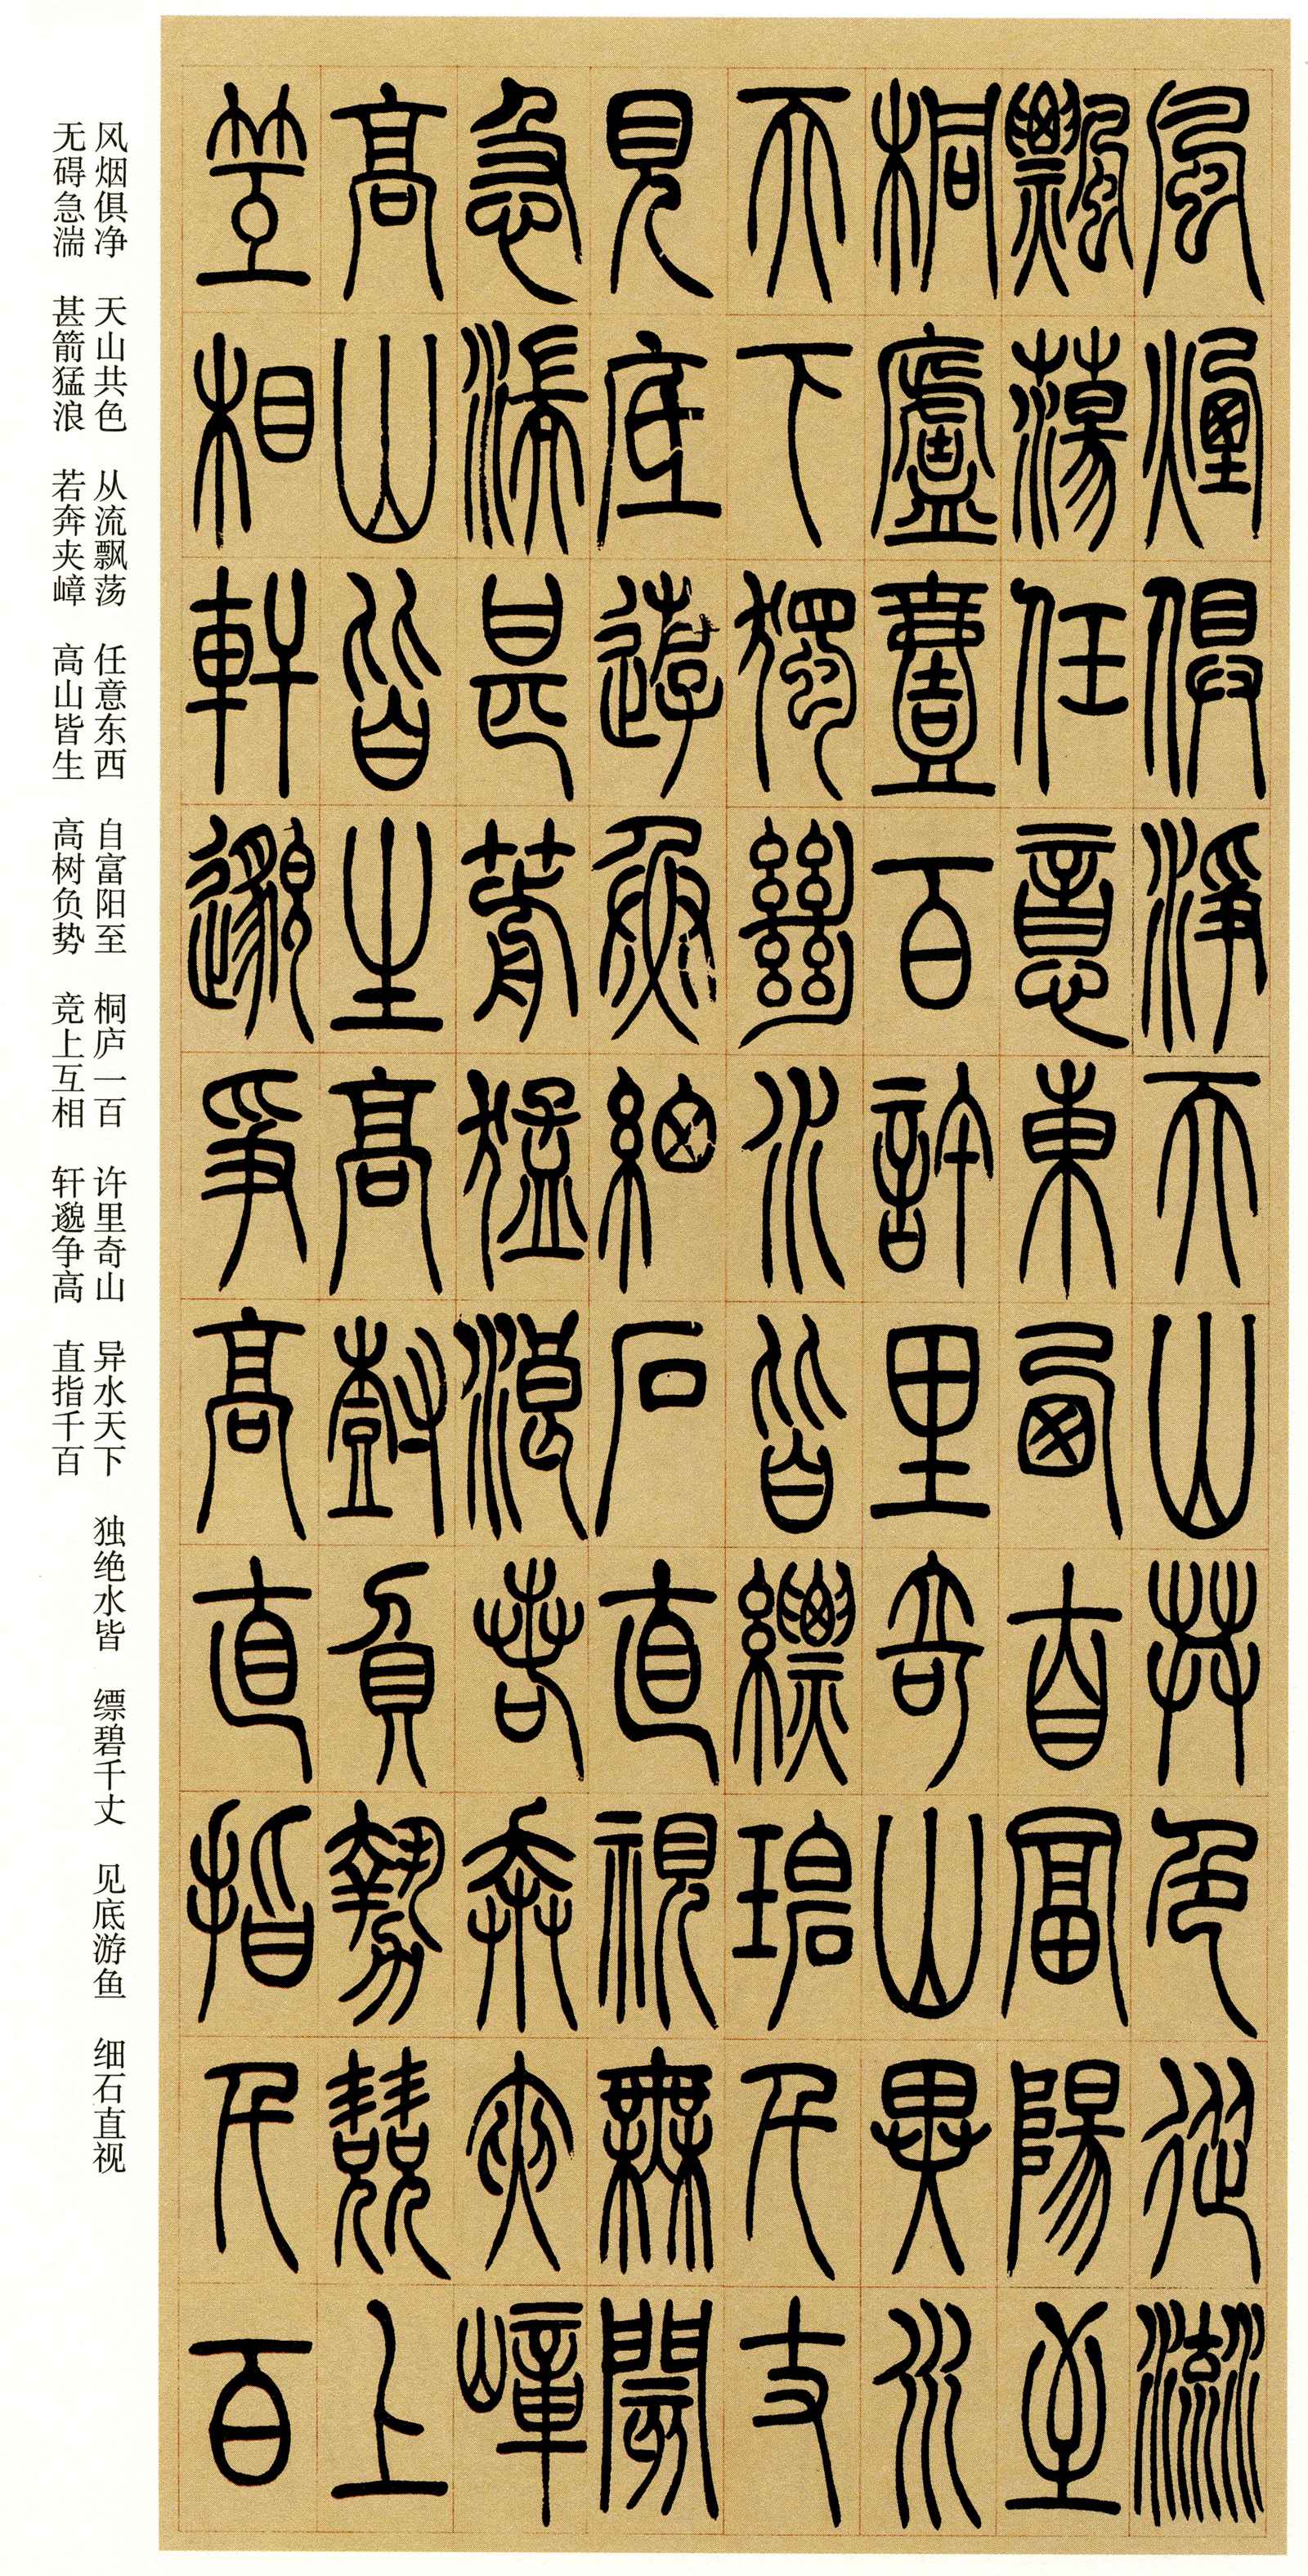 風煙俱淨天山共色從流
飄蕩任意東西自富陽至
桐廬壹百許里奇山異水
天下獨絕水皆縹碧千丈
見底遊魚細石直視無閡
急湍甚箭猛浪若奔夾嶂
高山皆生高樹負勢競上
互相軒邈爭高直指千百
风烟俱净 天山共色 从流飘荡 任意东西 自富阳至 桐庐一百 许里奇山 异水天下 独绝水皆 缥碧千丈 见底游鱼 细石直视
无碍急湍 甚箭猛浪 若奔夹嶂 高山皆生 高树负势 竞上互相 轩邈争高 直指千百